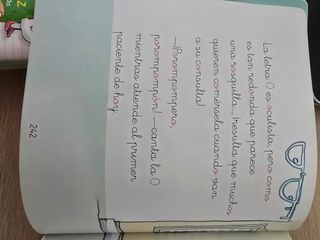 La letra O es oculista, pero como
es tan redonda que parece
una rosquilla... ¡resulta que muchos
quieren comérsela cuando van
a su consulta!
—¡Porompompero,
porompompón! —canta la O
mientras atiende al primer
paciente de hoy.
242